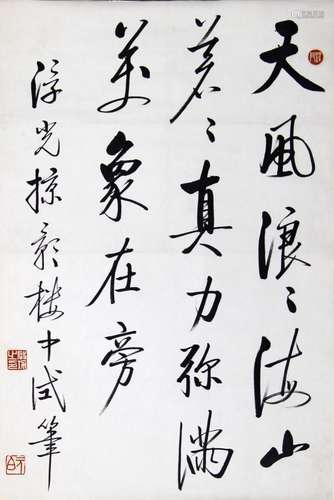 天風浪〻海山
蒼〻真力弥滿
萬象在旁
浮光掠影樓中試筆